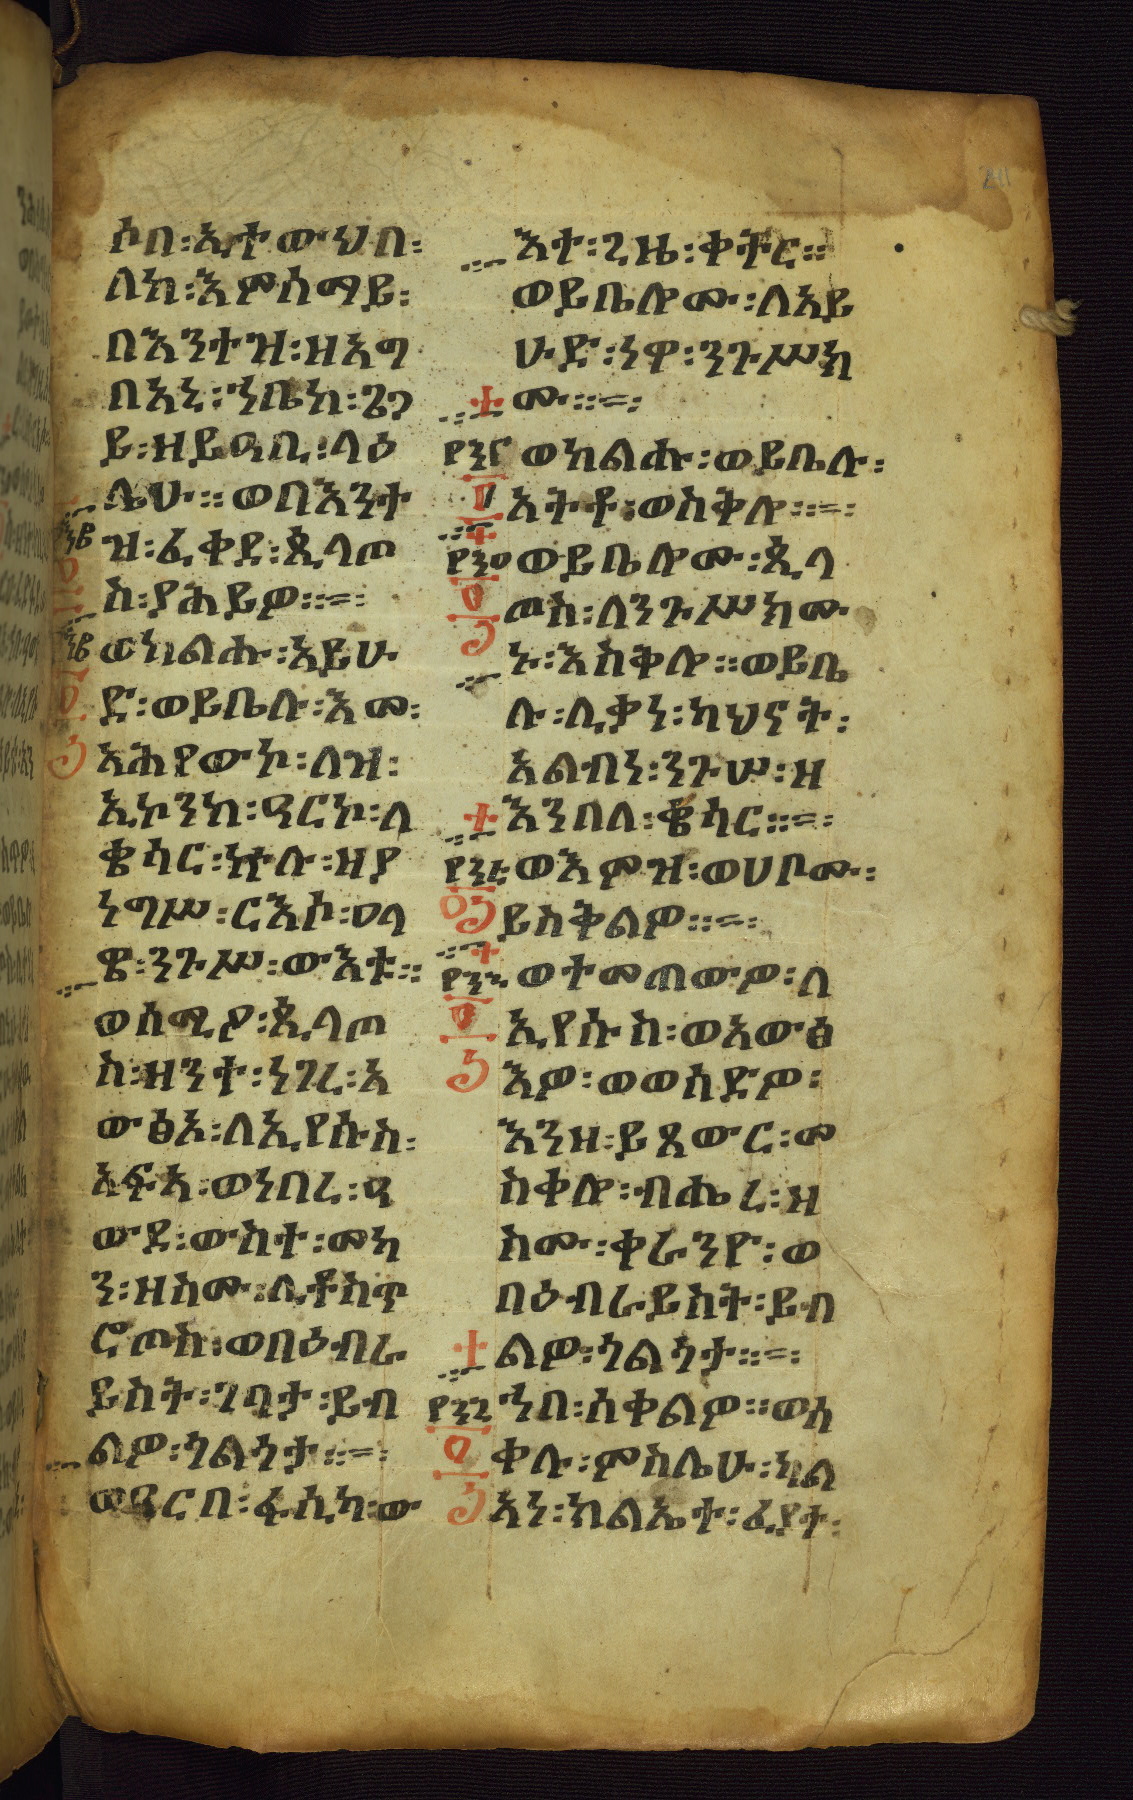 ሶበ፡ኢተውህበ፡
ለከ፡እምሰማይ፡
በእንተዝ፡ዘአግ
በአኒ፡ኀቤከ፡ጌጋ
ይ፡ዘይዐቢ፡ላዕ
ሌሁ። ወበእንተ
ዝ፡ፈቀደ፡ጲላጦ
ስ፡ያሕይዎ።=፡
ወከልሑ፡አይሁ
ድ፡ወይቤሉ፡እመ፡
አሕየውኮ፡ለዝ፡
ኢኮንከ፡ዓርኮ፡ለ
ቄሳር፡ኵሉ፡ዘያ
ነግሥ፡ርእሶ፡ዐላ
ዌ፡ንጉሥ፡ውእቱ።
ወሰሚዖ፡ጲላጦ
ስ፡ዘንተ፡ነገረ፡አ
ውፅአ፡ለኢየሱስ፡
አፍአ፡ወነበረ፡ዓ
ውደ፡ውስተ፡መካ
ን፡ዘስሙ፡ሊቶስጥ
ሮጦስ፡ወበዕብራ
ይስት፡ገባታ፡ይብ
ልዎ፡ጎልጎታ።=፡
ወዓርበ፡ፋሲካ፡ው
እተ፡ጊዜ፡ቀትር።
ወይቤሎሙ፡ለአይ
ሁድ፡ነዋ፡ንጉሥክ
ሙ።=፡
ወከልሑ፡ወይቤሉ፡
አትቶ፡ወስቅሎ።=፡
ወይቤሎሙ፡ጲላ
ጦስ፡ለንጉሥክሙ
ኑ፡እስቅሎ።ወይቤ
ሉ፡ሊቃነ፡ካህናት፡
አልብነ፡ንጉሠ፡ዘ
እንበለ፡ቄሳር።=፡
ወእምዝ፡ወሀቦሙ፡
ይስቅልዎ።=፡
ወተመጠውዎ፡ለ
ኢየሱስ፡ወአውፅ
እዎ፡ወወሰድዎ፡
እንዘ፡ይጸውር፡መ
ስቀሎ፡ብሔረ፡ዘ
ስሙ፡ቀራንዮ፡ወ
በዕብራይስት፡ይብ
ልዎ፡ጎልጎታ።=፡
ኀበ፡ሰቀልዎ።ወሰ
ቀሉ፡ምስሌሁ፡ካል
አነ፡ክልኤተ፡ፈያተ፡